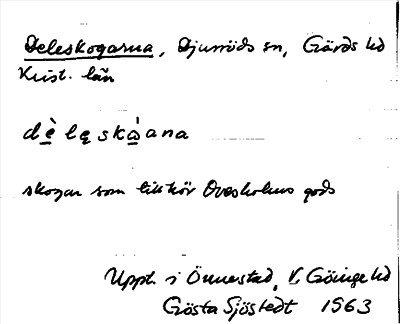 Deleskogarna, Djurröds sn, Gärds hd
Krist. län
dèlęskåana
skogar som tillhör Ovesholms gods
Uppt. i Önnestad, V. Göinge hd
Gösta Sjöstedt 1963